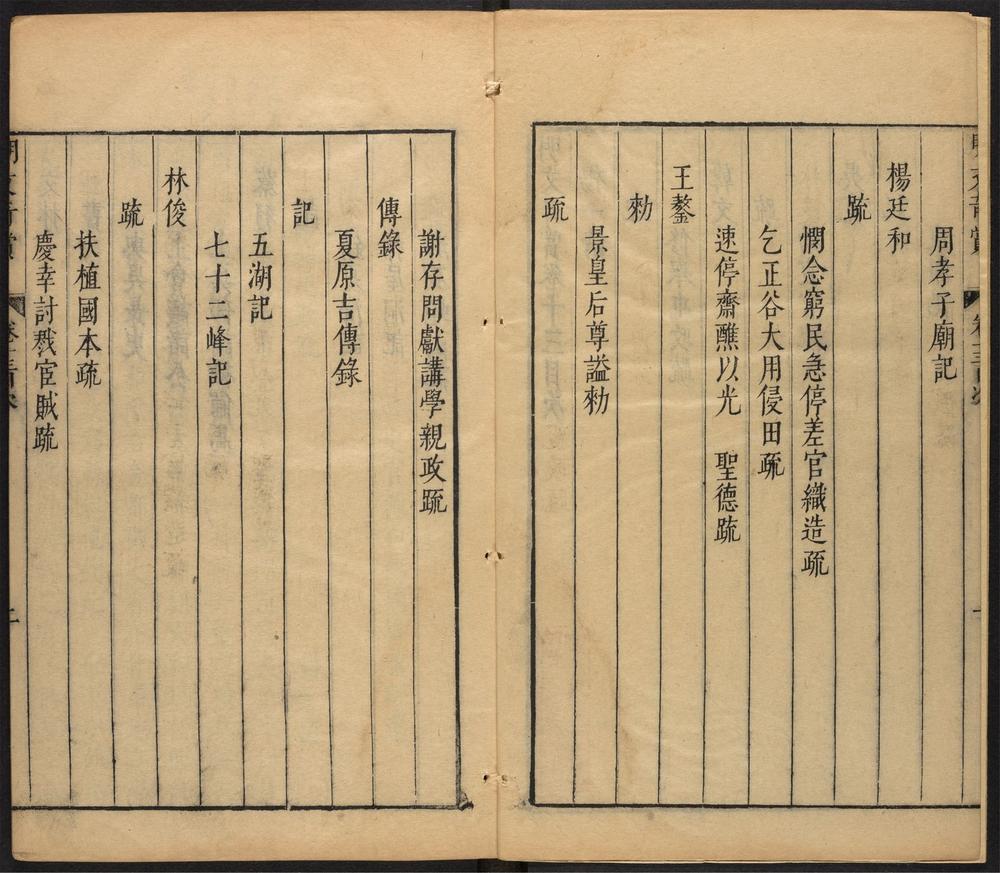 周孝子廟記
楊廷和
疏
憫念窮民急停差官織造疏
乞正谷大用侵田疏
速停齋醮以光　聖德疏
王鏊
勑
景皇后尊謚勑
疏
謝存問獻講學親政疏
傳錄
夏原吉傳錄
記
五湖記
七十二峰記
林俊
疏
扶植國本疏
慶幸討戮宦賊疏